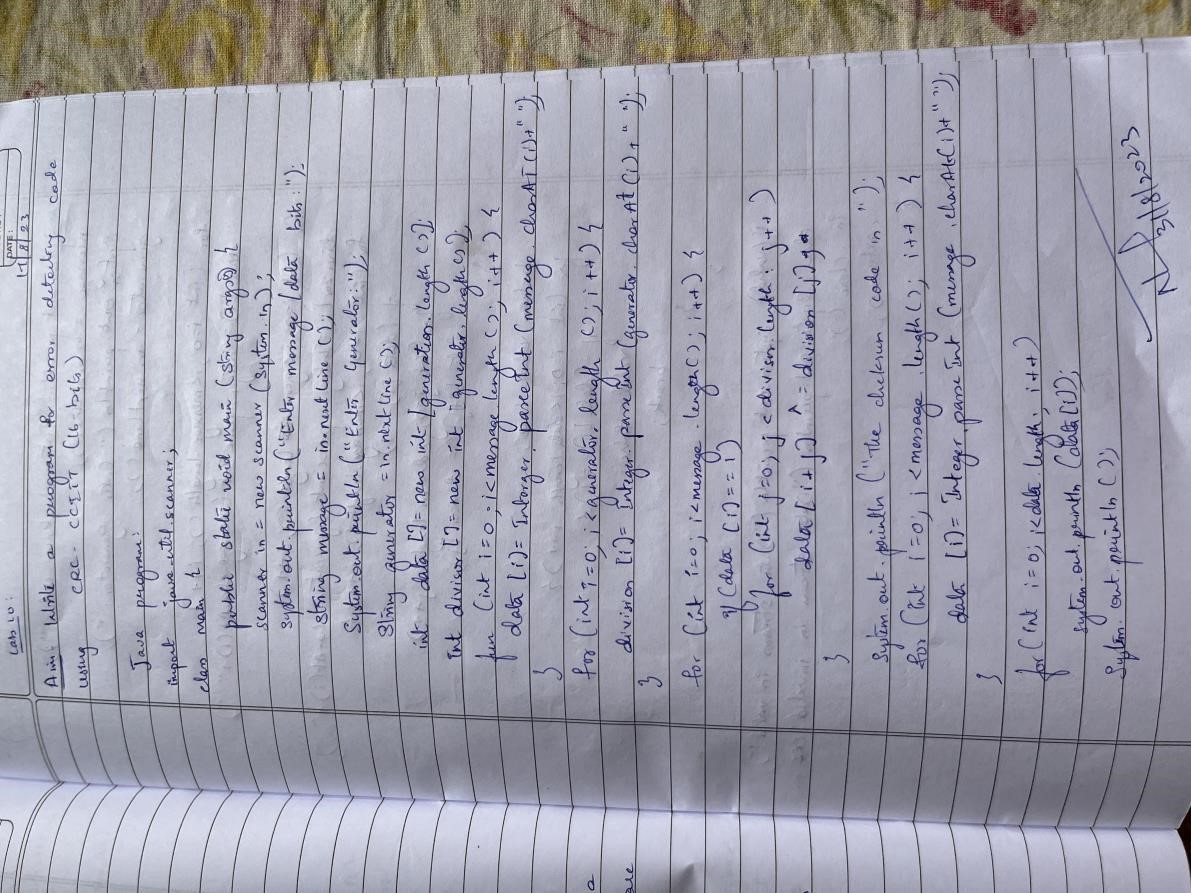 Lab 10:
DATE:
17/8/23
Aim: Write a program for error detecting code
using CRC-CCIIT (16-bits)
Java program:
import java.util.scanner;
class main {
public static void main (string args[]) {
scanner in = new scanner (system.in);
system.out.println ("Enter message/data bits:");
string message = in.next line ();
System.out.println ("Enter generator:");
String generator = in.next line ();
int data [] = new int [generation.length ()];
int divisor [] = new int [generator.length()];
for (int i=0; i<message.length (); i++) {
data [i] = Interger.parseInt (message.charAT(i)+"");
}
for (int i=0; i<generator.length (); i++) {
division [i] = Integer.parseInt (generator.charAt(i)+"");
}
for (int i=0; i<message.length(); i++) {
if (data [i]==1)
for (int j=0; j<division.length; j++)
data [i+j] ^ = division [j];
}
System.out.println ("The cheksum code in");
for (int i=0; i<message.length(); i++) {
data [i] = Integer.parseInt (message.charAt(i)+"");
}
for (int i=0; i<data.length; i++)
system.out.println (data[i]);
System.out.println ();
31/8/2023
a
are